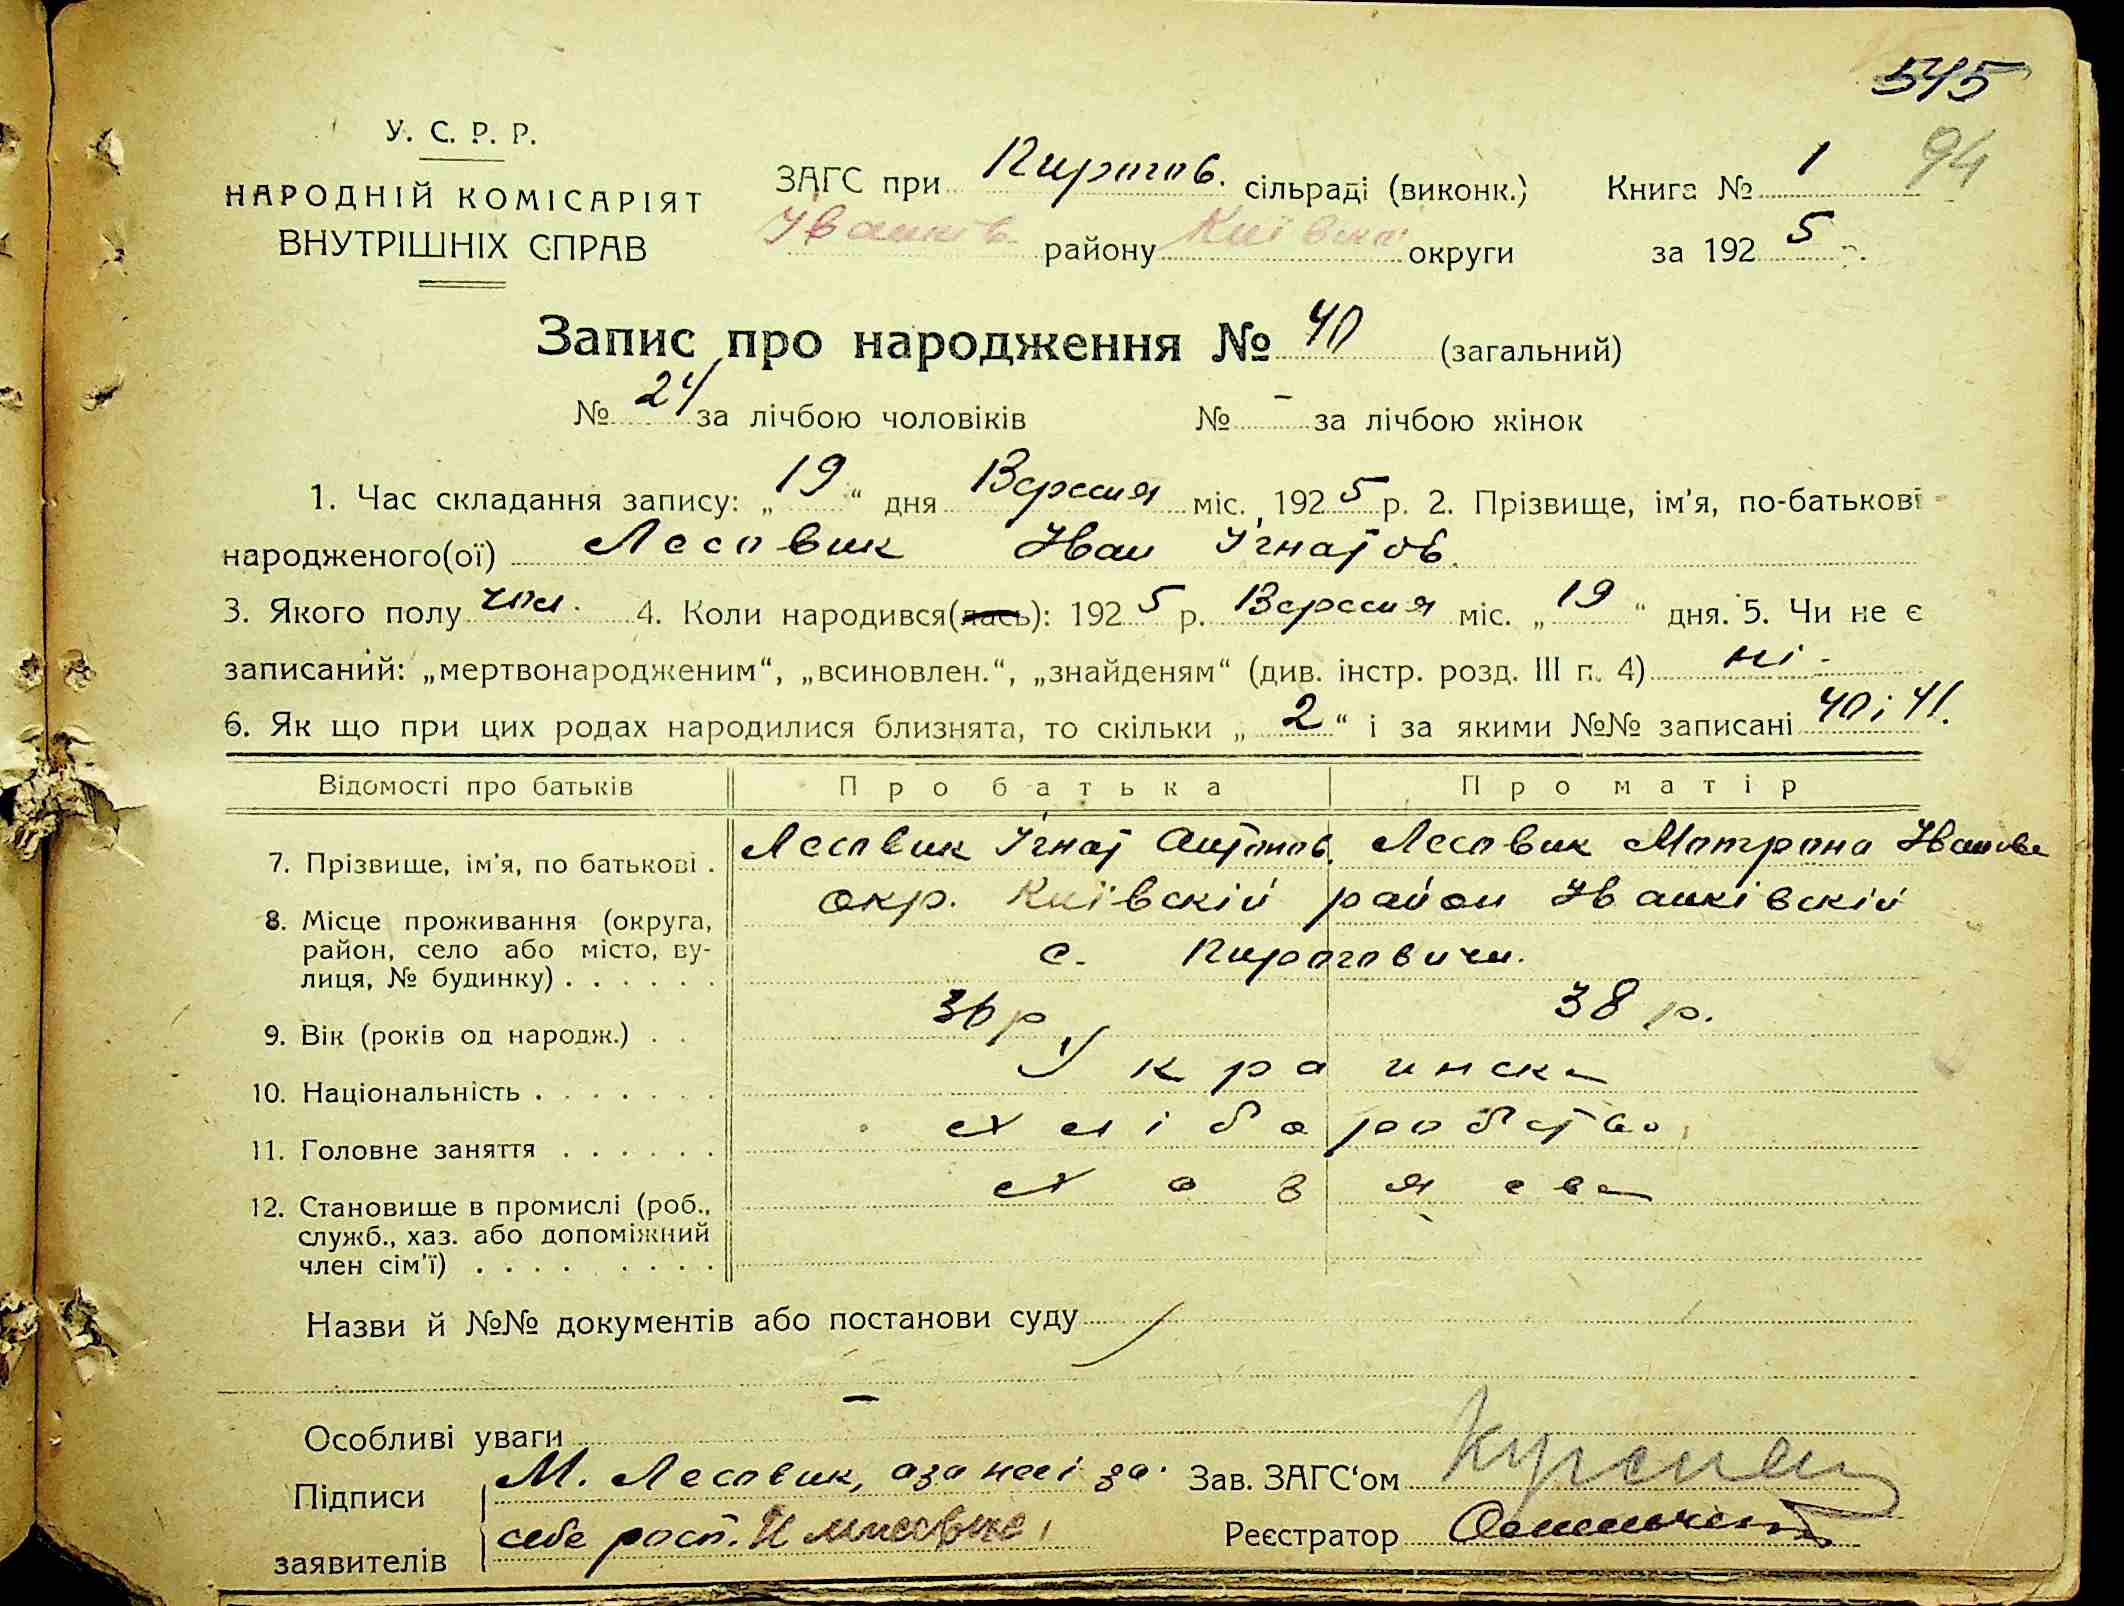 545
94
У. С. Р. Р.
НАРОДНІЙ КОМІСАРІЯТ
ВНУТРІШНІХ СПРАВ
ЗАГС при Пирогов. сільраді (виконк.) Книга № 1
Іванків району Київськ. округи за 192 5 р.
Запис про народження № 40 (загальний)
№ 24 за лічбою чоловіків № – за лічбою жінок
1. Час складання запису: „ 19 “ дня Вересня міс. 192 5 р. 2. Прізвище, ім’я, по-батькові
народженого(ої) Лесовик Иван Игнатов.
3. Якого полу чол. 4. Коли народився(лась): 192 5 р. Вересня міс. „ 19 “ дня. 5. Чи не є
записаний: „мертвонародженим“, „всиновлен.“, „знайденям“ (див. інстр. розд. III п. 4) ні -
6. Як що при цих родах народилися близнята, то скільки „ 2 “ і за якими №№ записані 40 і 41.
Відомості про батьків Про батька Про матір
7. Прізвище, ім’я, по батькові . Лесовик Игнат Антонов. Лесовик Мотрона Иванова
8. Місце проживання (округа, окр. Київскій район Иванківскій
район, село або місто, ву- с. Пироговичи.
лиця, № будинку) . . . . . .
9. Вік (років од народж.) . . 36 р. 38 р.
10. Національність . . . . . . . Украинска
11. Головне заняття . . . . . . Хліборобство
12. Становище в промислі (роб., Хозяева
служб., хаз. або допоміжний
член сім’ї) . . . . . . . . .
Назви й №№ документів або постанови суду
–
Особливі уваги
Підписи М. Лесовик, а за неі і за Зав. ЗАГС‘ом
заявителів себе росп. Реєстратор